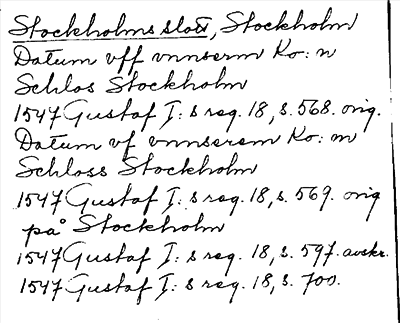 Stockholms slott, Stockholm
Datum vff vnnserm Ko: n
Schlos Stockholm
1547 Gustaf I: s reg. 18, s. 568. orig.
Datum vf vnnserem Ko: n
Schloss Stockholm
1547 Gustaf I: s reg. 18, s. 569. orig
på Stockholm
1547 Gustaf I: s reg. 18, s. 597. avskr.
1547 Gustaf I: s reg. 18, s. 700.